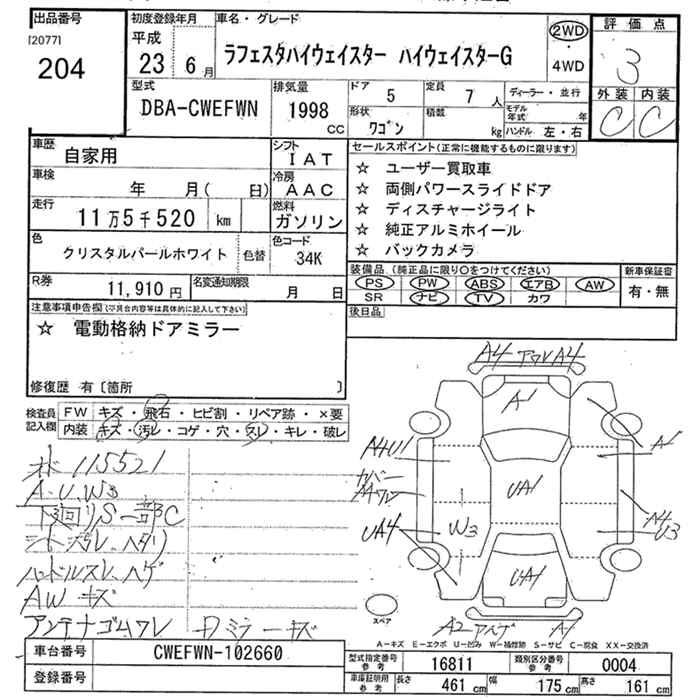 出品番号
[2077]
204
初度登録年月
平成
23 6月
車名・グレード
ラフェスタハイウェイスター ハイウェイスターG
2WD
・
4WD
評価点
3
外装 内装
C C
型式
DBA-CWEFWN
排気量
1998
CC
ドア
5
定員
7人
形状
ワゴン
積載
kg
ディーラー・並行
モデル年式 年
ハンドル 左・右
車歴
自家用
シフト
IAT
車検
年 月( 日)
冷房
AAC
走行
11万5千520 km
燃料
ガソリン
色
クリスタルパールホワイト
色替
色コード
34K
R券
11,910円
名変通知期限
月 日
セールスポイント(正常に機能するものに限ります)
☆ ユーザー買取車
☆ 両側パワースライドドア
☆ ディスチャージライト
☆ 純正アルミホイール
☆ バックカメラ
装備品 (純正品に限り○をつけてください)
PS PW ABS エアB AW
SR ナビ TV カワ
新車保証書
有・無
後日品
注意事項申告欄(※具合内容等は具体的に記入して下さい)
☆ 電動格納ドアミラー
修復歴 有〔箇所 〕
検査員
記入欄
FW キズ・飛石・ヒビ割・リペア跡・×要
内装 キズ・汚レ・コゲ・穴・スレ・キレ・破レ
115521
A.U.W3
下廻りS一部C
シート汚レ、ヘタリ
ハンドルスレ、ハゲ
AW キズ
アンテナゴムワレ
ミラーキズ
A4 A4
A1
A1
カバー
UA1
A4
U3
UA4
W3
UA1
A2
スペア
A-キズ E-エクボ U-凹み W-補修跡 S-サビ C-腐食 XX-交換済
車台番号
CWEFWN-102660
登録番号
型式指定番号
参考
16811
類別区分番号
参考
0004
車庫証明用
参考
長さ
461 cm
幅
175 cm
高さ
161 cm